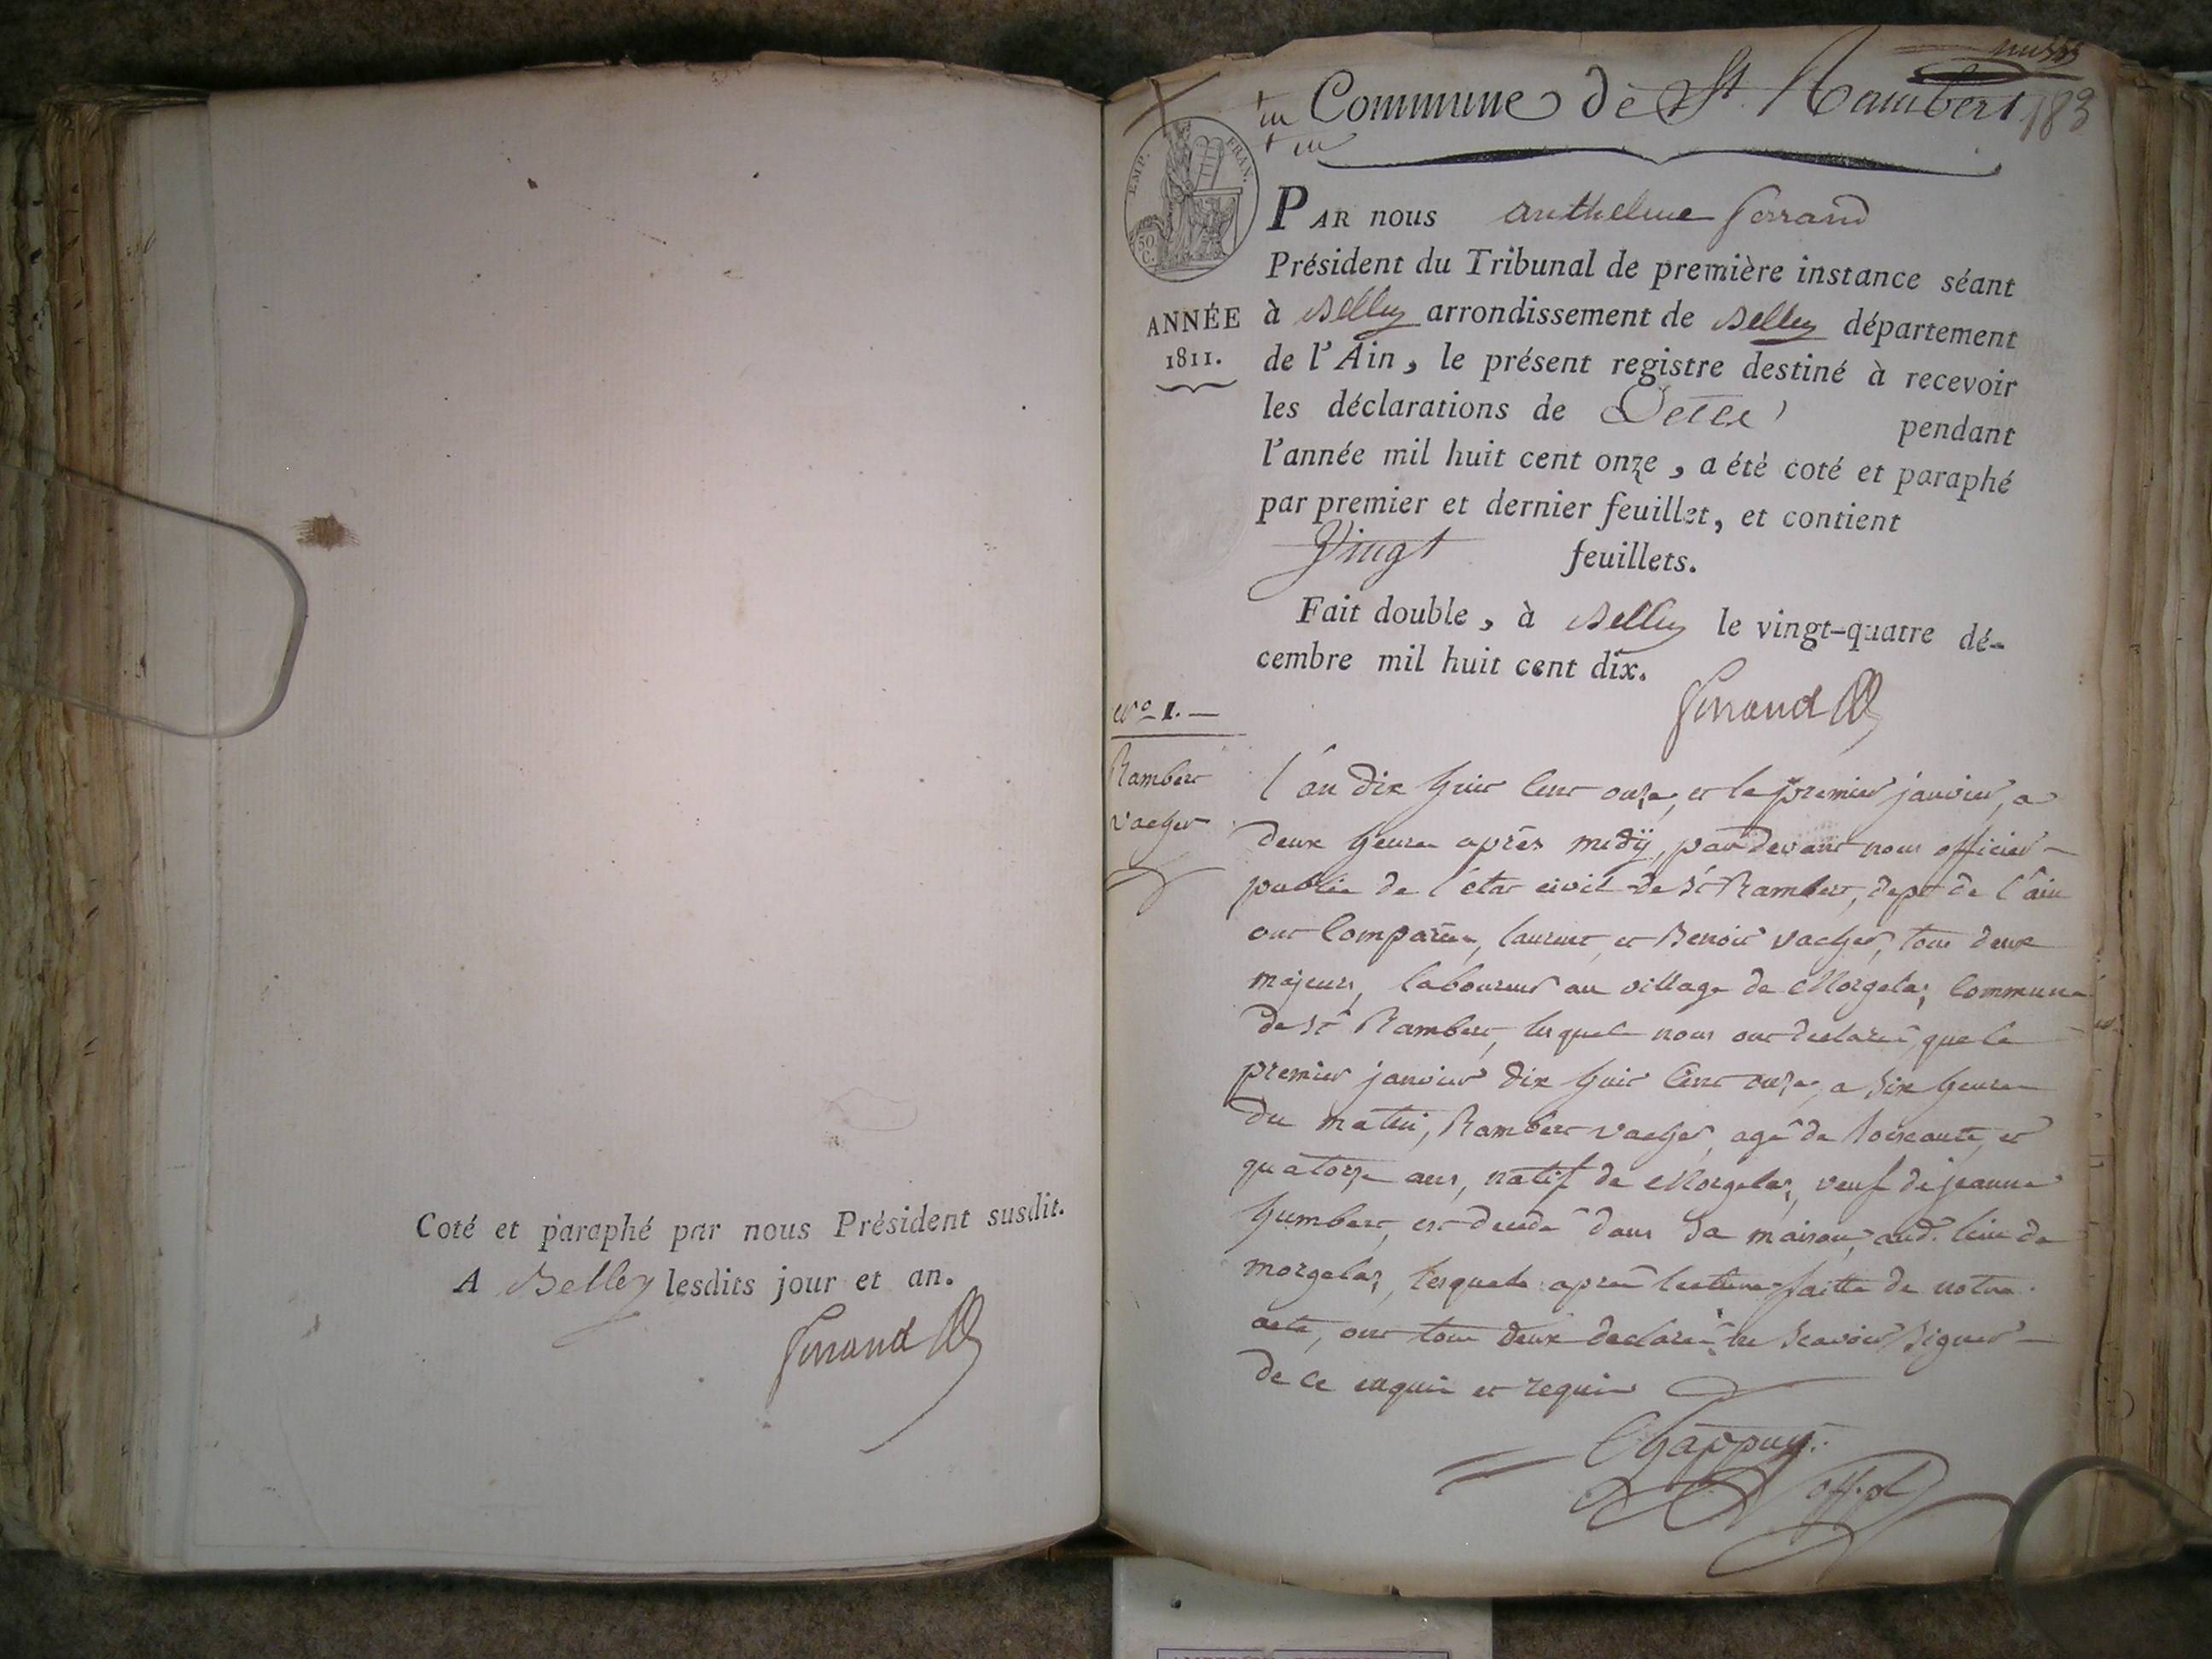 Coté et paraphé par nous Président susdit.
A Belley lesdits jour et an.
Commune de St. Rambert 183
EMP. FRAN.
50 C.
ANNÉE
1811.
PAR nous anthelme ferrand
Président du Tribunal de première instance séant
à Belley arrondissement de Belley département
de l'Ain, le présent registre destiné à recevoir
les déclarations de Décès pendant
l'année mil huit cent onze, a été coté et paraphé
par premier et dernier feuillet, et contient
Vingt feuillets.
Fait double, à Belley le vingt-quatre dé-
cembre mil huit cent dix.
ferrand
N° 1.
Rambert
vacher
l'an dix huit cent onze, et le premier janvier, a
deux heures après midÿ, pardevant nous officier
public de l'état civil de st Rambert, dept de l'ain
ont comparu, laurent, et Benoit vacher, tous deux
majeurs, laboureurs au village de Morgelas, commune
de st Rambert, lesquels nous ont declaré, que le
premier janvier dix huit cent onze, a six heures
du matin, Rambert vacher, agé de soixante, et
quatorze ans, natif de Morgelas, veuf de jeanne
humbert, est decedé dans sa maison, aud. lieu de
morgelas, lesquels après lecture faitte de notre
acte, ont tous deux declaré ne scavoir signer
de ce enquis et requis
Chappuy
off. pl